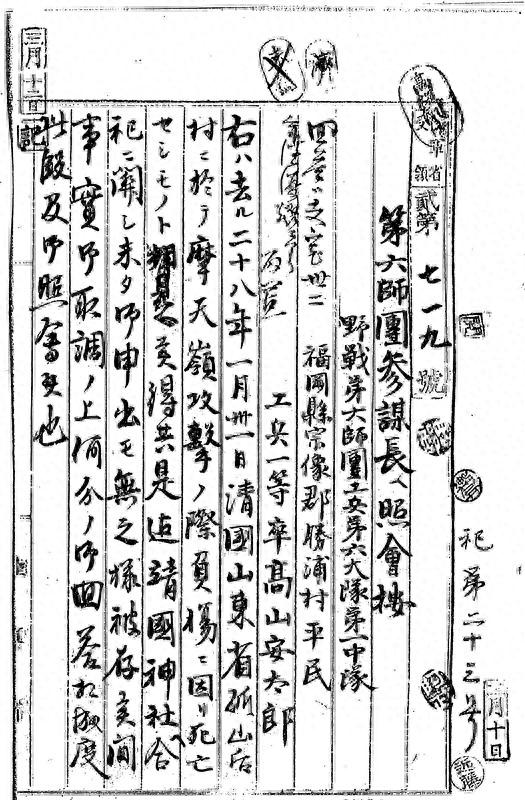 祀第二十三号
二月十日
貳第七一九號
第六師團參謀長ヘ照會按
野戰第六師團工兵第六大隊第一中隊
福岡縣宗像郡勝浦村平民
工兵一等卒高山安太郎
右ハ去ル二十八年一月卅一日清國山東省孤山后
村ニ於テ摩天嶺攻擊ノ際負傷ニ因リ死亡
セシモノト候得共是迄靖國神社合
祀ニ關シ未タ御申出モ無之様被存候間
事實御取調ノ上何分ノ御回答相成度
此段及御照會候也
三月十二日
記